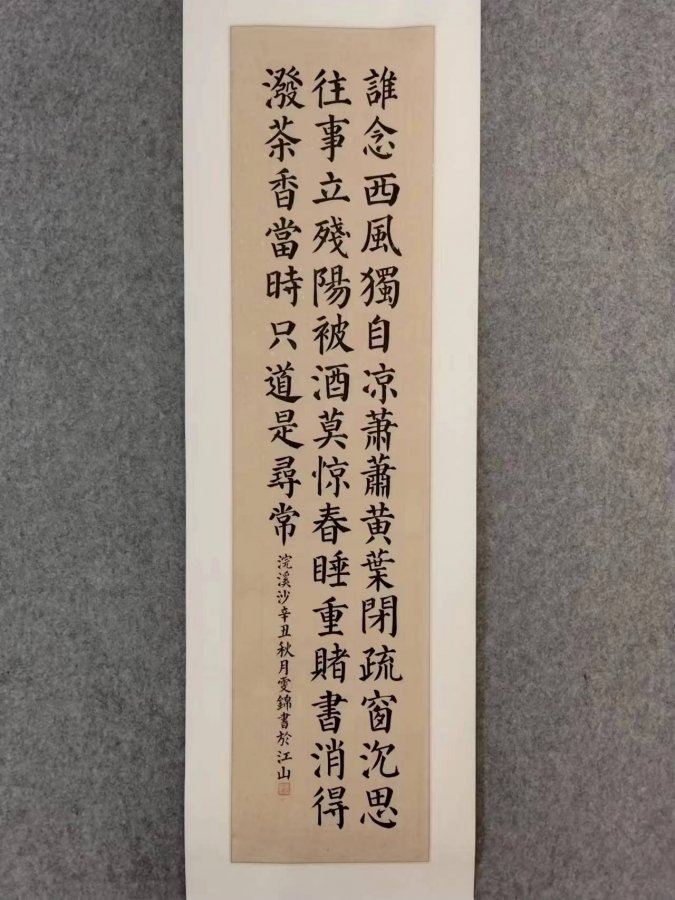 誰念西風獨自凉蕭蕭黄葉閉疏窗沉思
往事立殘陽被酒莫惊春睡重賭書消得
潑茶香當時只道是尋常
浣溪沙辛丑秋月雯錦書於江山